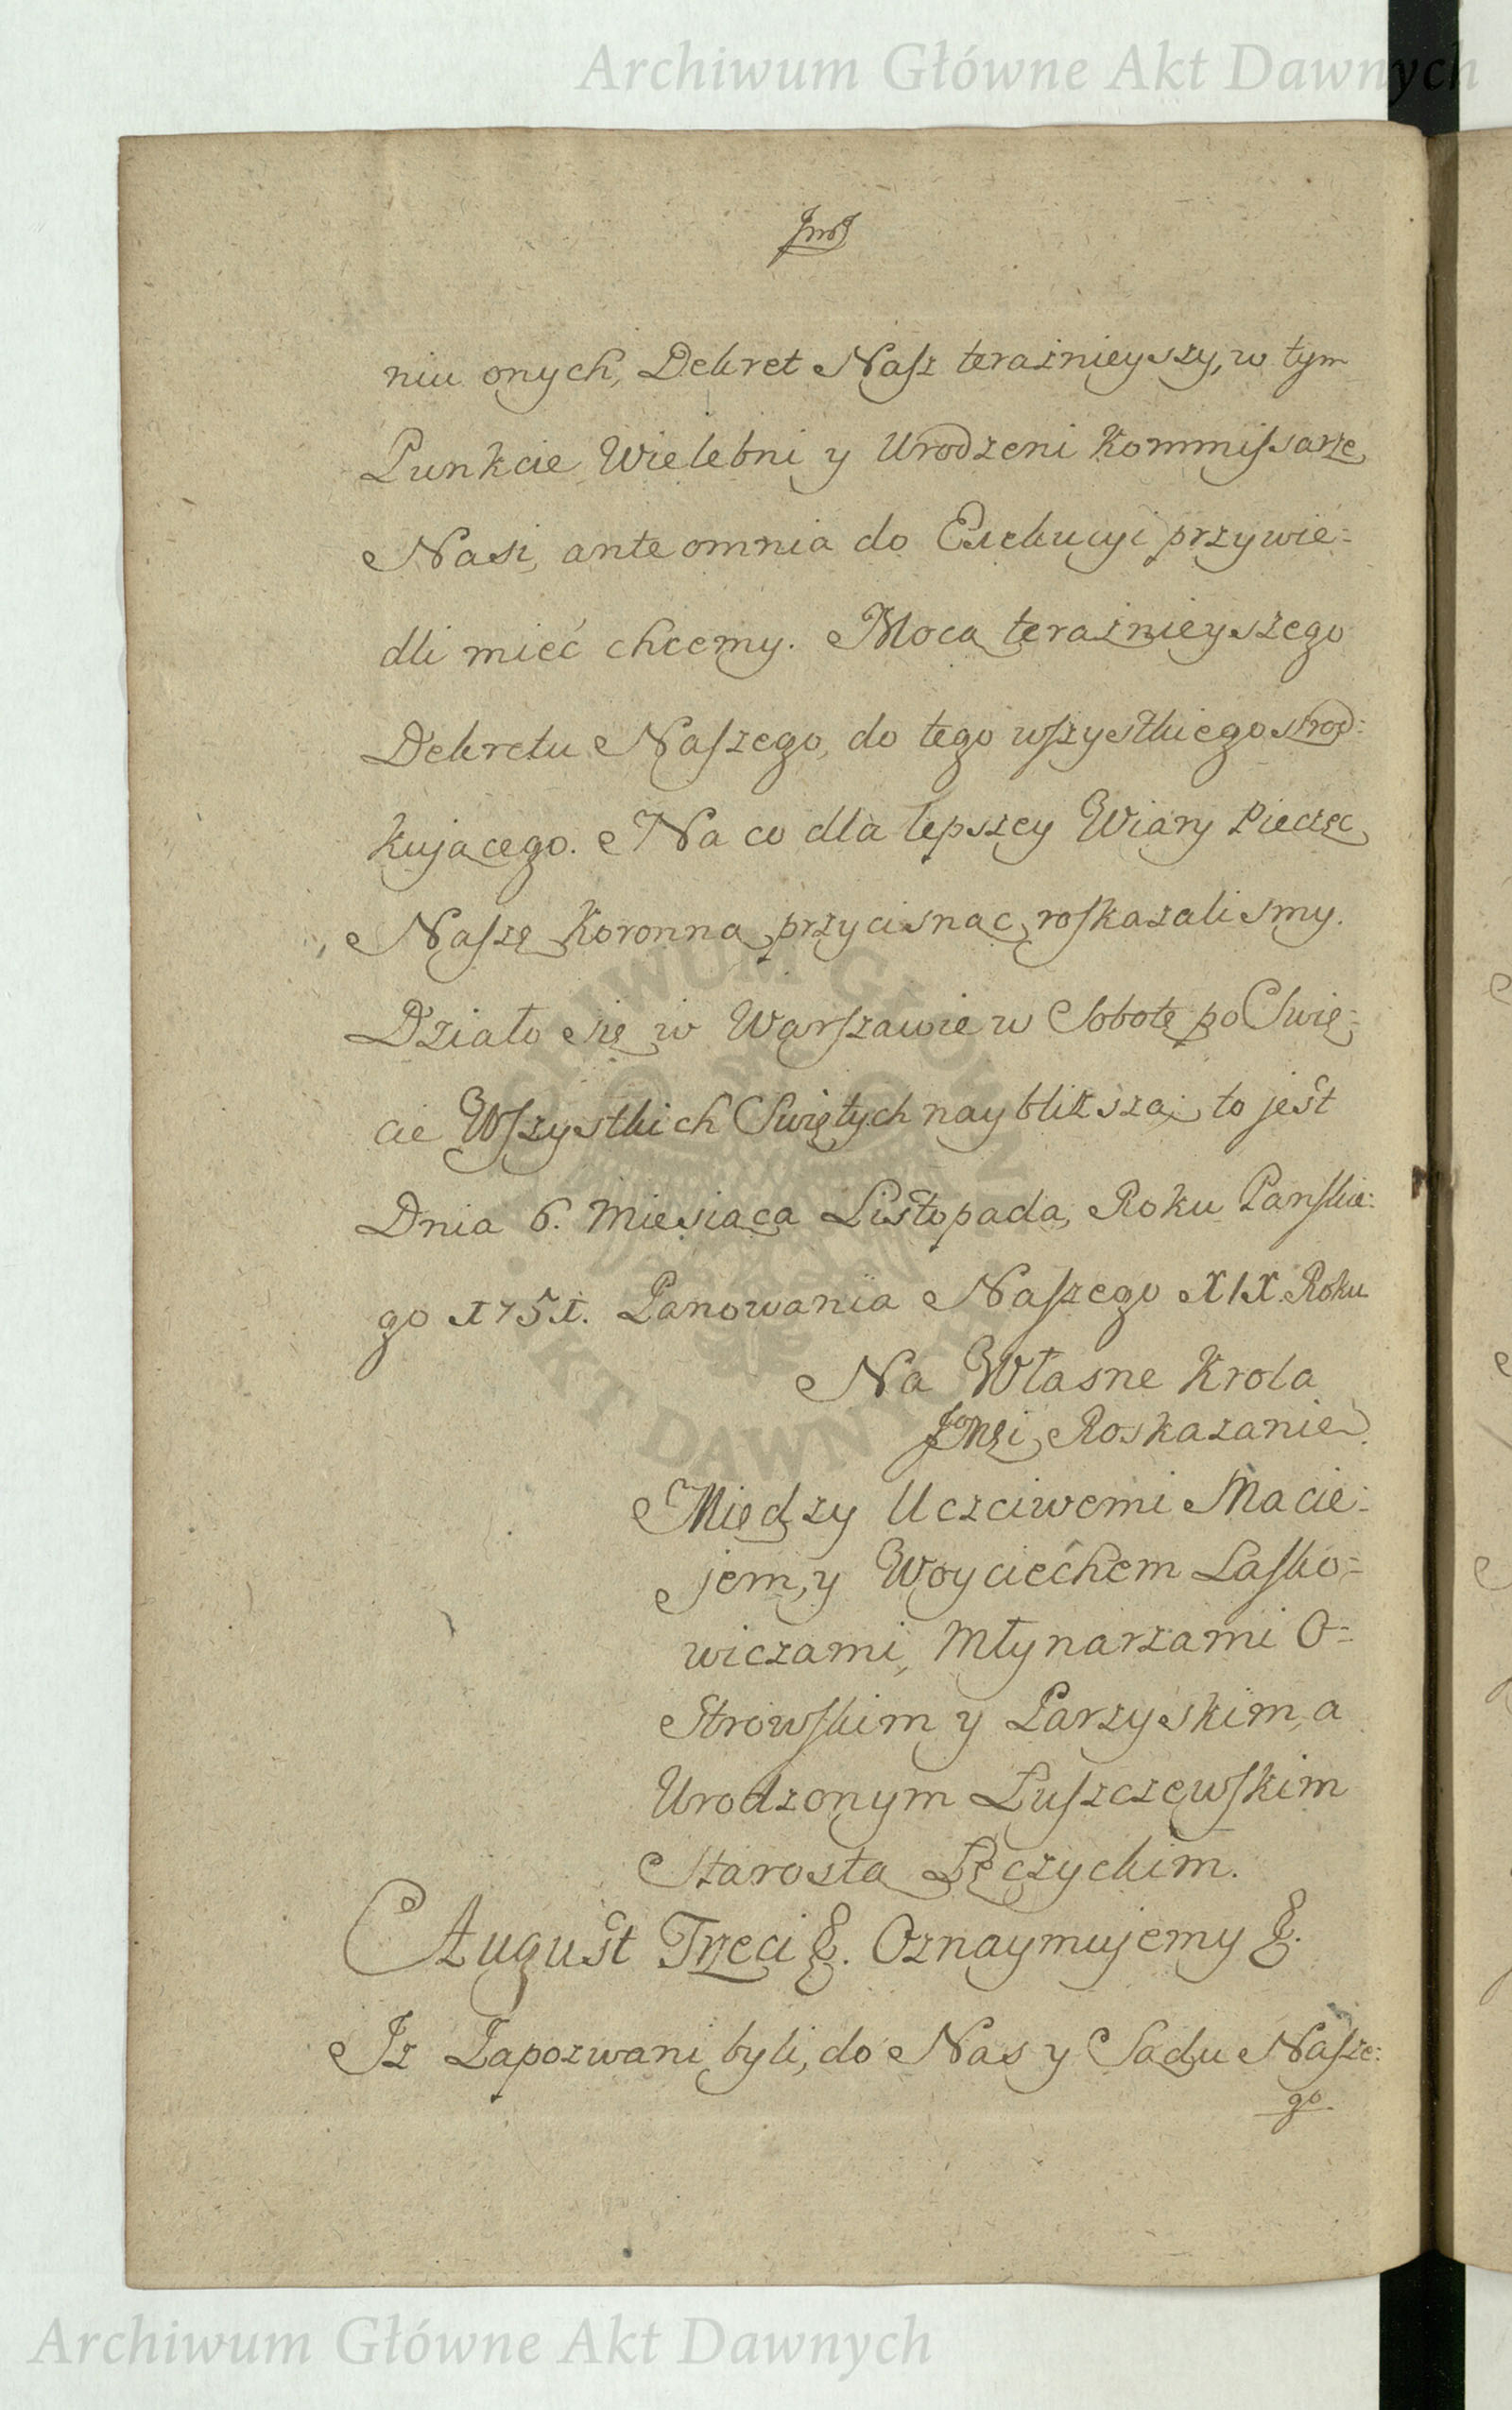 Archiwum Główne Akt Dawnych
niu onych, Dekret Nasz teraznieyszy, w tym
Punkcie Wielebni y Urodzeni Kommissarze
Nasi, ante omnia do Exekucyi przywie=
dli mieć chcemy. Mocą teraznieyszego
Dekretu Naszego, do tego wszystkiego srod=
kującego. Na co dla lepszey Wiary Pieczęć
Naszę Koronną przycisnąć roskazalismy.
Działo się w Warszawie w Sobotę po Swię=
cie Wszystkich Swiętych naybliższą; to jest
Dnia 6. Miesiąca Listopada, Roku Pańskie=
go 1751. Panowania Naszego XIX. Roku
Na Własne Krola
JoMści Roskazanie.
Między Uczciwemi Macie=
jem, y Woyciechem Lasko=
wiczami, Młynarzami O=
strowskim y Parzyskim, a
Urodzonym Luszczewskim
Starostą Łęczyckim.
August Trzeci &. Oznaymujemy &.
Iz Zapozwani byli, do Nas y Sądu Nasze=
go.
ARCHIWUM GŁÓWNE
AKT DAWNYCH
Archiwum Główne Akt Dawnych